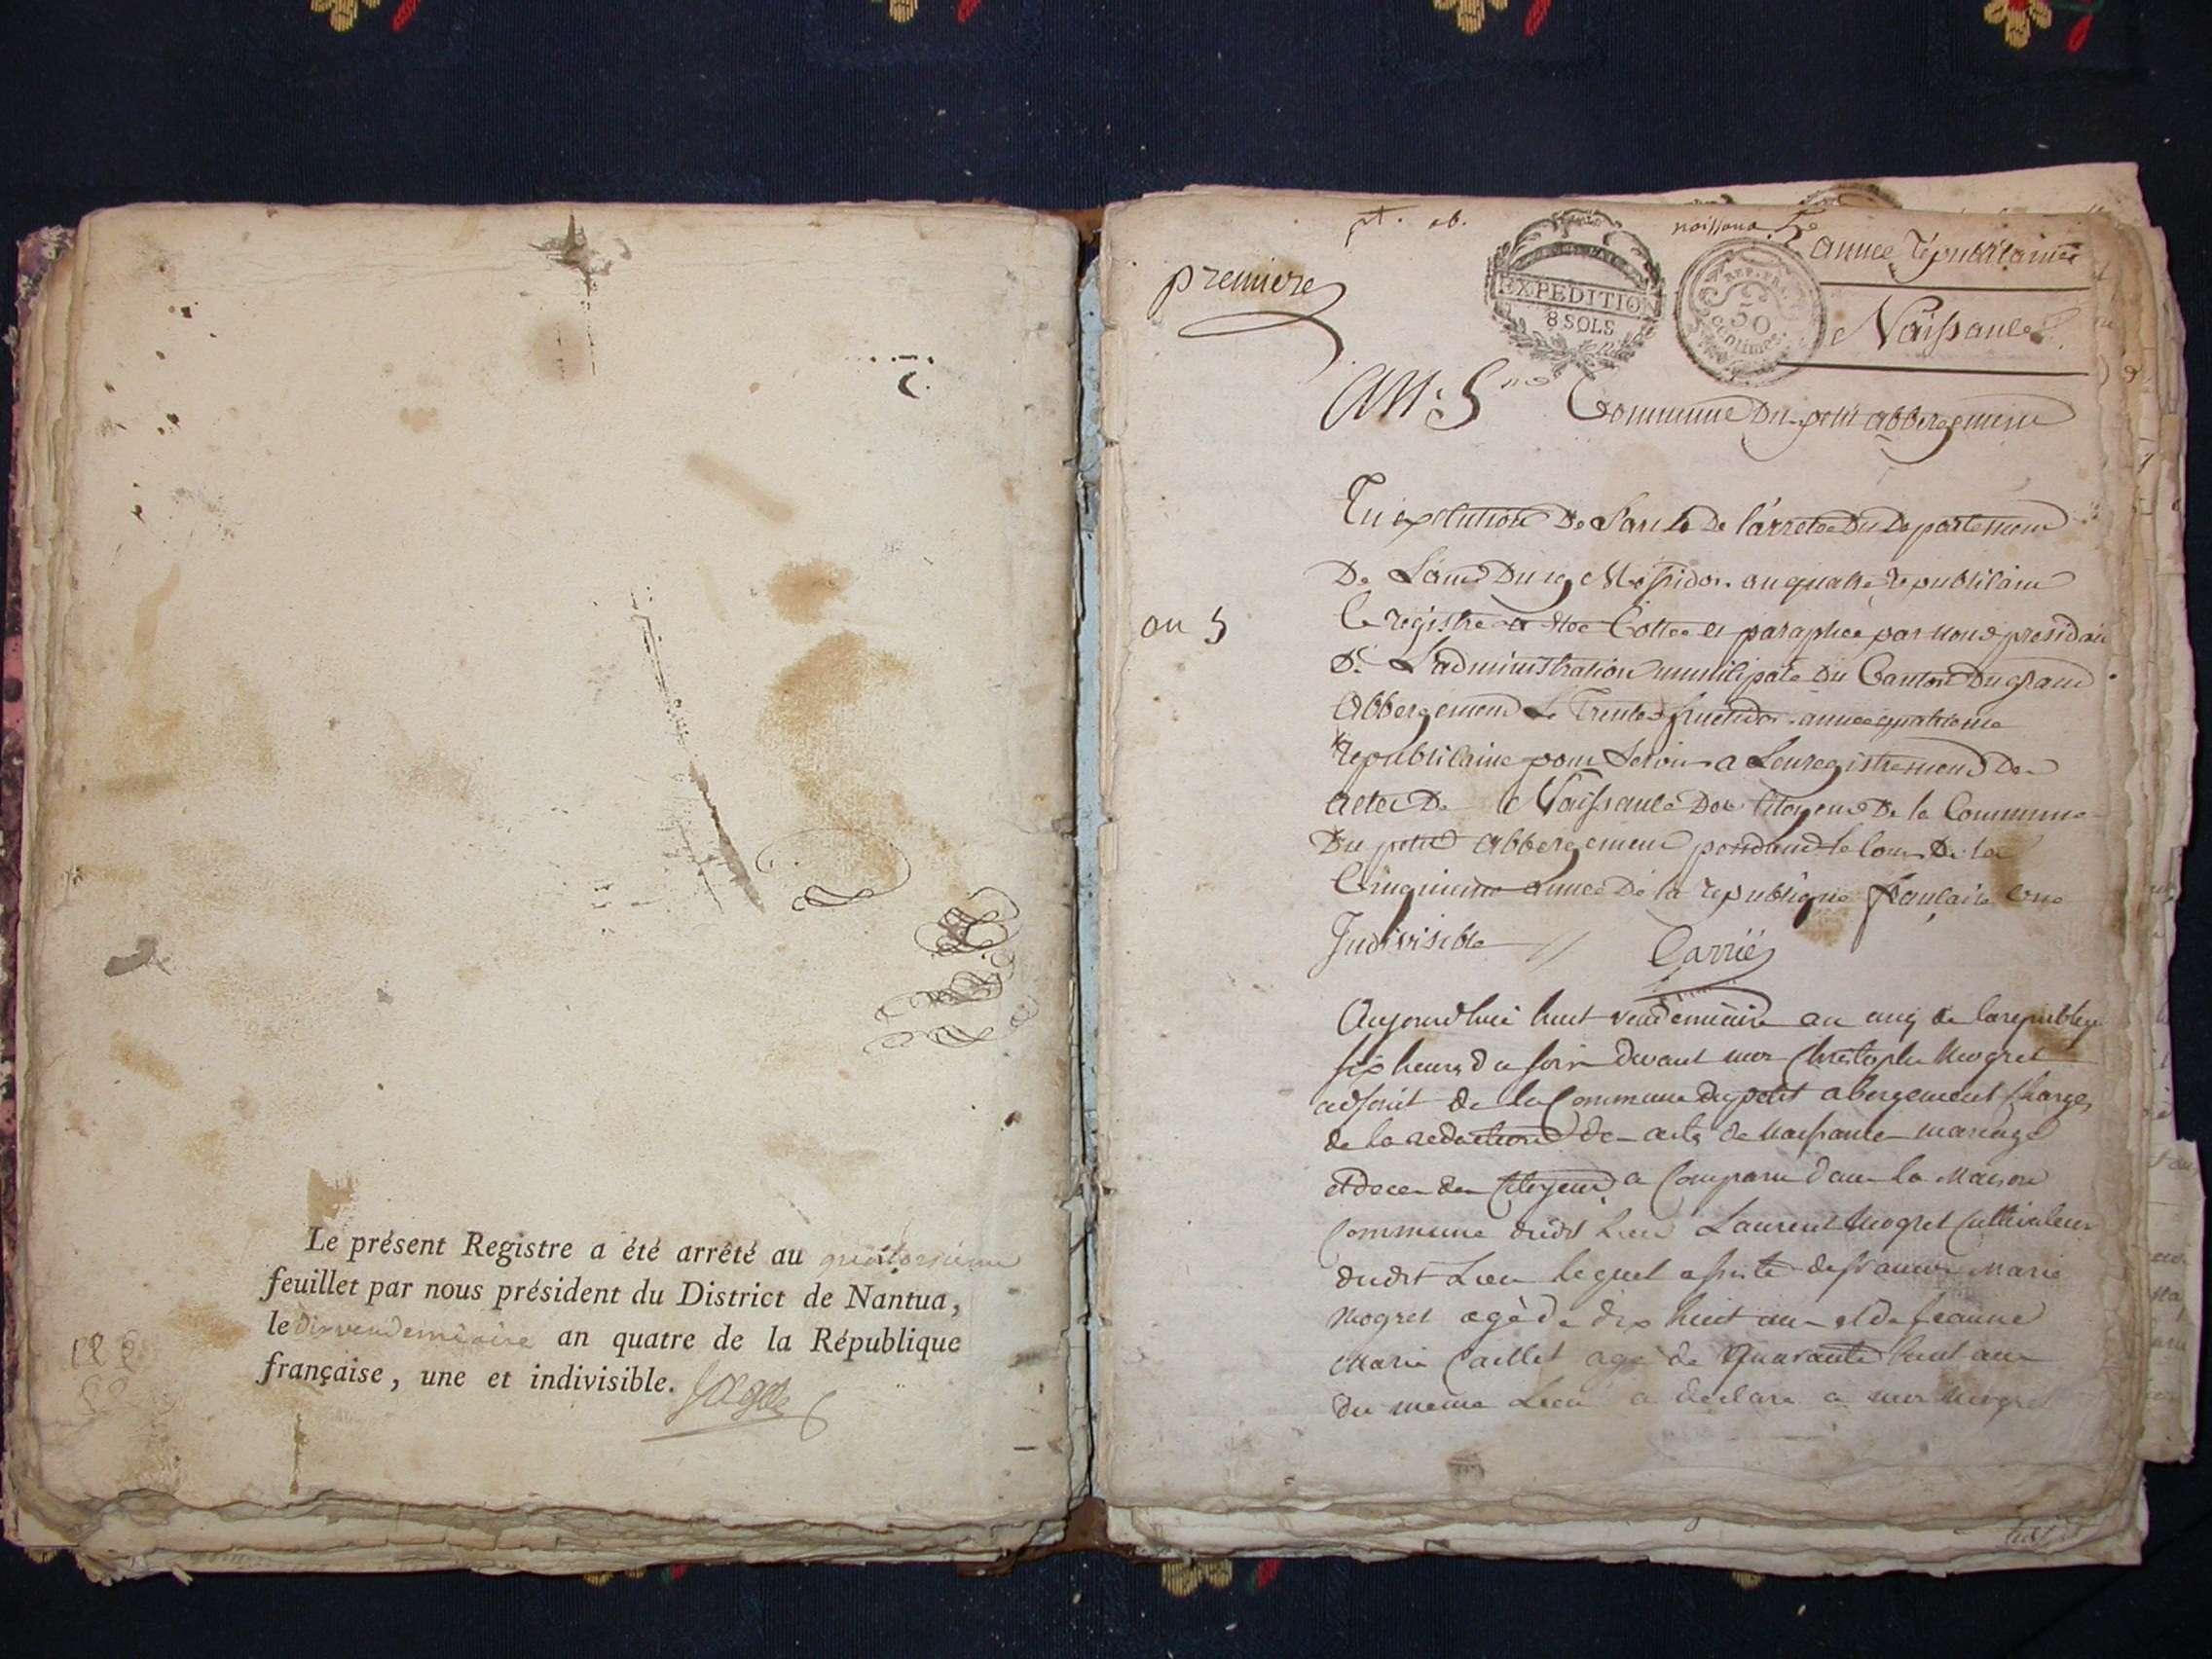 Le présent Registre a été arrêté au quatorzieme
feuillet par nous président du District de Nantua,
le dix vendemiaire an quatre de la République
française, une et indivisible.
premiere
EXPEDITION
8 SOLS
REP. FRA.
50
Centimes
naissance 5e
annee republicaine
Naissance
an 5
Commune du petit abbergement
En execution de l'arretee du departement
De L'ain Du 19 Messidor an quatre republicain
an 5
Ce registre a etee Cottee et paraphee par nous presidant
De L'administration municipale du Canton Du grand
Abbergement Le Trente fructidor annee quatrieme
republicaine pour servir a L'enregistrement Des
actes De Naissance Des Citoyens De la Commune
Du petit Abbergement pendant le cour De la
Cinquieme annee De la republique francaise Une
Indivisible // Carrié
Aujourdhui huit vendemiaire an cinq de la republique
six heures du soir devant moi Christophe Mogret
adjoint de la Commune du petit abergement Charge
de la redaction des actes de Naissance mariage
et deces des Citoyens a Comparu dans la Maison
Commune dudit Lieu Laurent Mogret Cultivateur
dudit Lieu lequel assisté de francois Marie
Mogret agé de dix huit ans et de jeanne
Marie Caillet agé de quarante huit ans
du meme Lieu a declare a moi Mogret